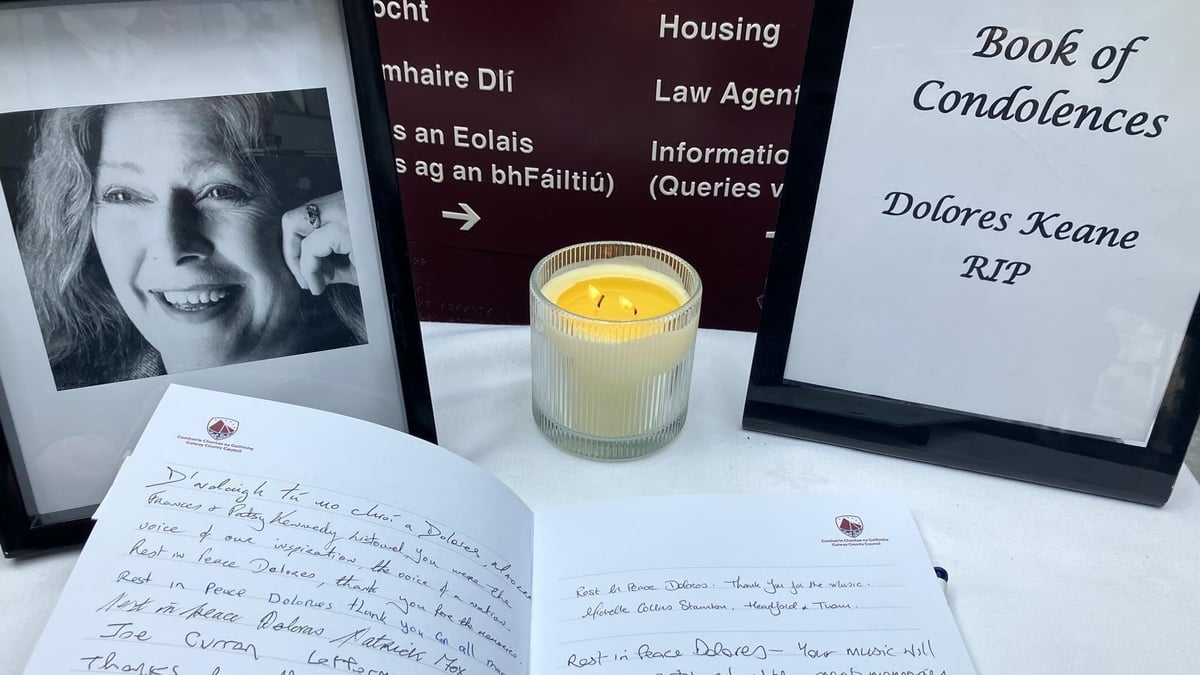 ocht
mhaire Dlí
s an Eolais
s ag an bhFáiltiú)
Housing
Law Agent
Informatio
(Queries v
Book of
Condolences
Dolores Keane
RIP
Comhairle Chontae na Gaillimhe
Galway County Council
D'ardaigh tú mo chroí a Dolores,
Frances & Patsy Kennedy Listowel, you were the
voice of our inspiration, the voice of a nation.
Rest in Peace Dolores, thank you for the memories.
Rest in Peace Dolores thank you for all
Rest in peace Dolores Patrick
Joe Curran
Thanks
Comhairle Chontae na Gaillimhe
Galway County Council
Rest in Peace Dolores. Thank you for the music.
Michelle Collins Staunton. Headford & Tuam.
Rest in Peace Dolores – Your music will